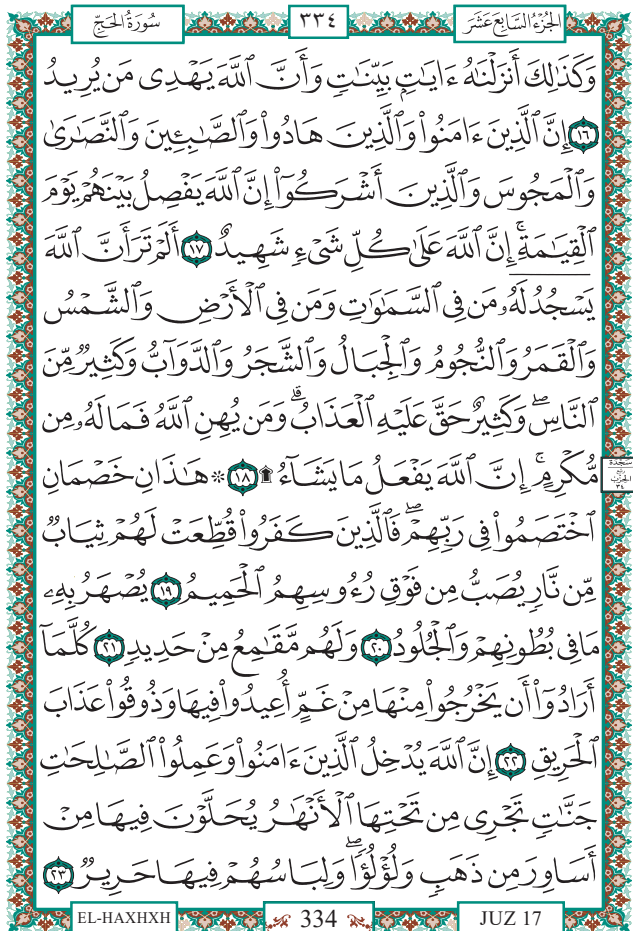 سُورَةُ الحَجِّ ٣٣٤ الجُزْءُ السَّابِعَ عَشَرَ
وَكَذَٰلِكَ أَنزَلْنَٰهُ ءَايَٰتٍۭ بَيِّنَٰتٍ وَأَنَّ ٱللَّهَ يَهْدِى مَن يُرِيدُ
١٦ إِنَّ ٱلَّذِينَ ءَامَنُوا۟ وَٱلَّذِينَ هَادُوا۟ وَٱلصَّٰبِـِٔينَ وَٱلنَّصَٰرَىٰ
وَٱلْمَجُوسَ وَٱلَّذِينَ أَشْرَكُوٓا۟ إِنَّ ٱللَّهَ يَفْصِلُ بَيْنَهُمْ يَوْمَ
ٱلْقِيَٰمَةِ ۚ إِنَّ ٱللَّهَ عَلَىٰ كُلِّ شَىْءٍ شَهِيدٌ ١٧ أَلَمْ تَرَ أَنَّ ٱللَّهَ
يَسْجُدُ لَهُۥ مَن فِى ٱلسَّمَٰوَٰتِ وَمَن فِى ٱلْأَرْضِ وَٱلشَّمْسُ
وَٱلْقَمَرُ وَٱلنُّجُومُ وَٱلْجِبَالُ وَٱلشَّجَرُ وَٱلدَّوَآبُّ وَكَثِيرٌ مِّنَ
ٱلنَّاسِ ۖ وَكَثِيرٌ حَقَّ عَلَيْهِ ٱلْعَذَابُ ۗ وَمَن يُهِنِ ٱللَّهُ فَمَا لَهُۥ مِن
مُّكْرِمٍ ۚ إِنَّ ٱللَّهَ يَفْعَلُ مَا يَشَآءُ ۩ ١٨ ۞ هَٰذَانِ خَصْمَانِ
سجدة
ربع
الحزب
٣٤
ٱخْتَصَمُوا۟ فِى رَبِّهِمْ ۖ فَٱلَّذِينَ كَفَرُوا۟ قُطِّعَتْ لَهُمْ ثِيَابٌ
مِّن نَّارٍ يُصَبُّ مِن فَوْقِ رُءُوسِهِمُ ٱلْحَمِيمُ ١٩ يُصْهَرُ بِهِۦ
مَا فِى بُطُونِهِمْ وَٱلْجُلُودُ ٢٠ وَلَهُم مَّقَٰمِعُ مِنْ حَدِيدٍ ٢١ كُلَّمَآ
أَرَادُوٓا۟ أَن يَخْرُجُوا۟ مِنْهَا مِنْ غَمٍّ أُعِيدُوا۟ فِيهَا وَذُوقُوا۟ عَذَابَ
ٱلْحَرِيقِ ٢٢ إِنَّ ٱللَّهَ يُدْخِلُ ٱلَّذِينَ ءَامَنُوا۟ وَعَمِلُوا۟ ٱلصَّٰلِحَٰتِ
جَنَّٰتٍ تَجْرِى مِن تَحْتِهَا ٱلْأَنْهَٰرُ يُحَلَّوْنَ فِيهَا مِنْ
أَسَاوِرَ مِن ذَهَبٍ وَلُؤْلُؤًا ۖ وَلِبَاسُهُمْ فِيهَا حَرِيرٌ ٢٣
EL-HAXHXH 334 JUZ 17